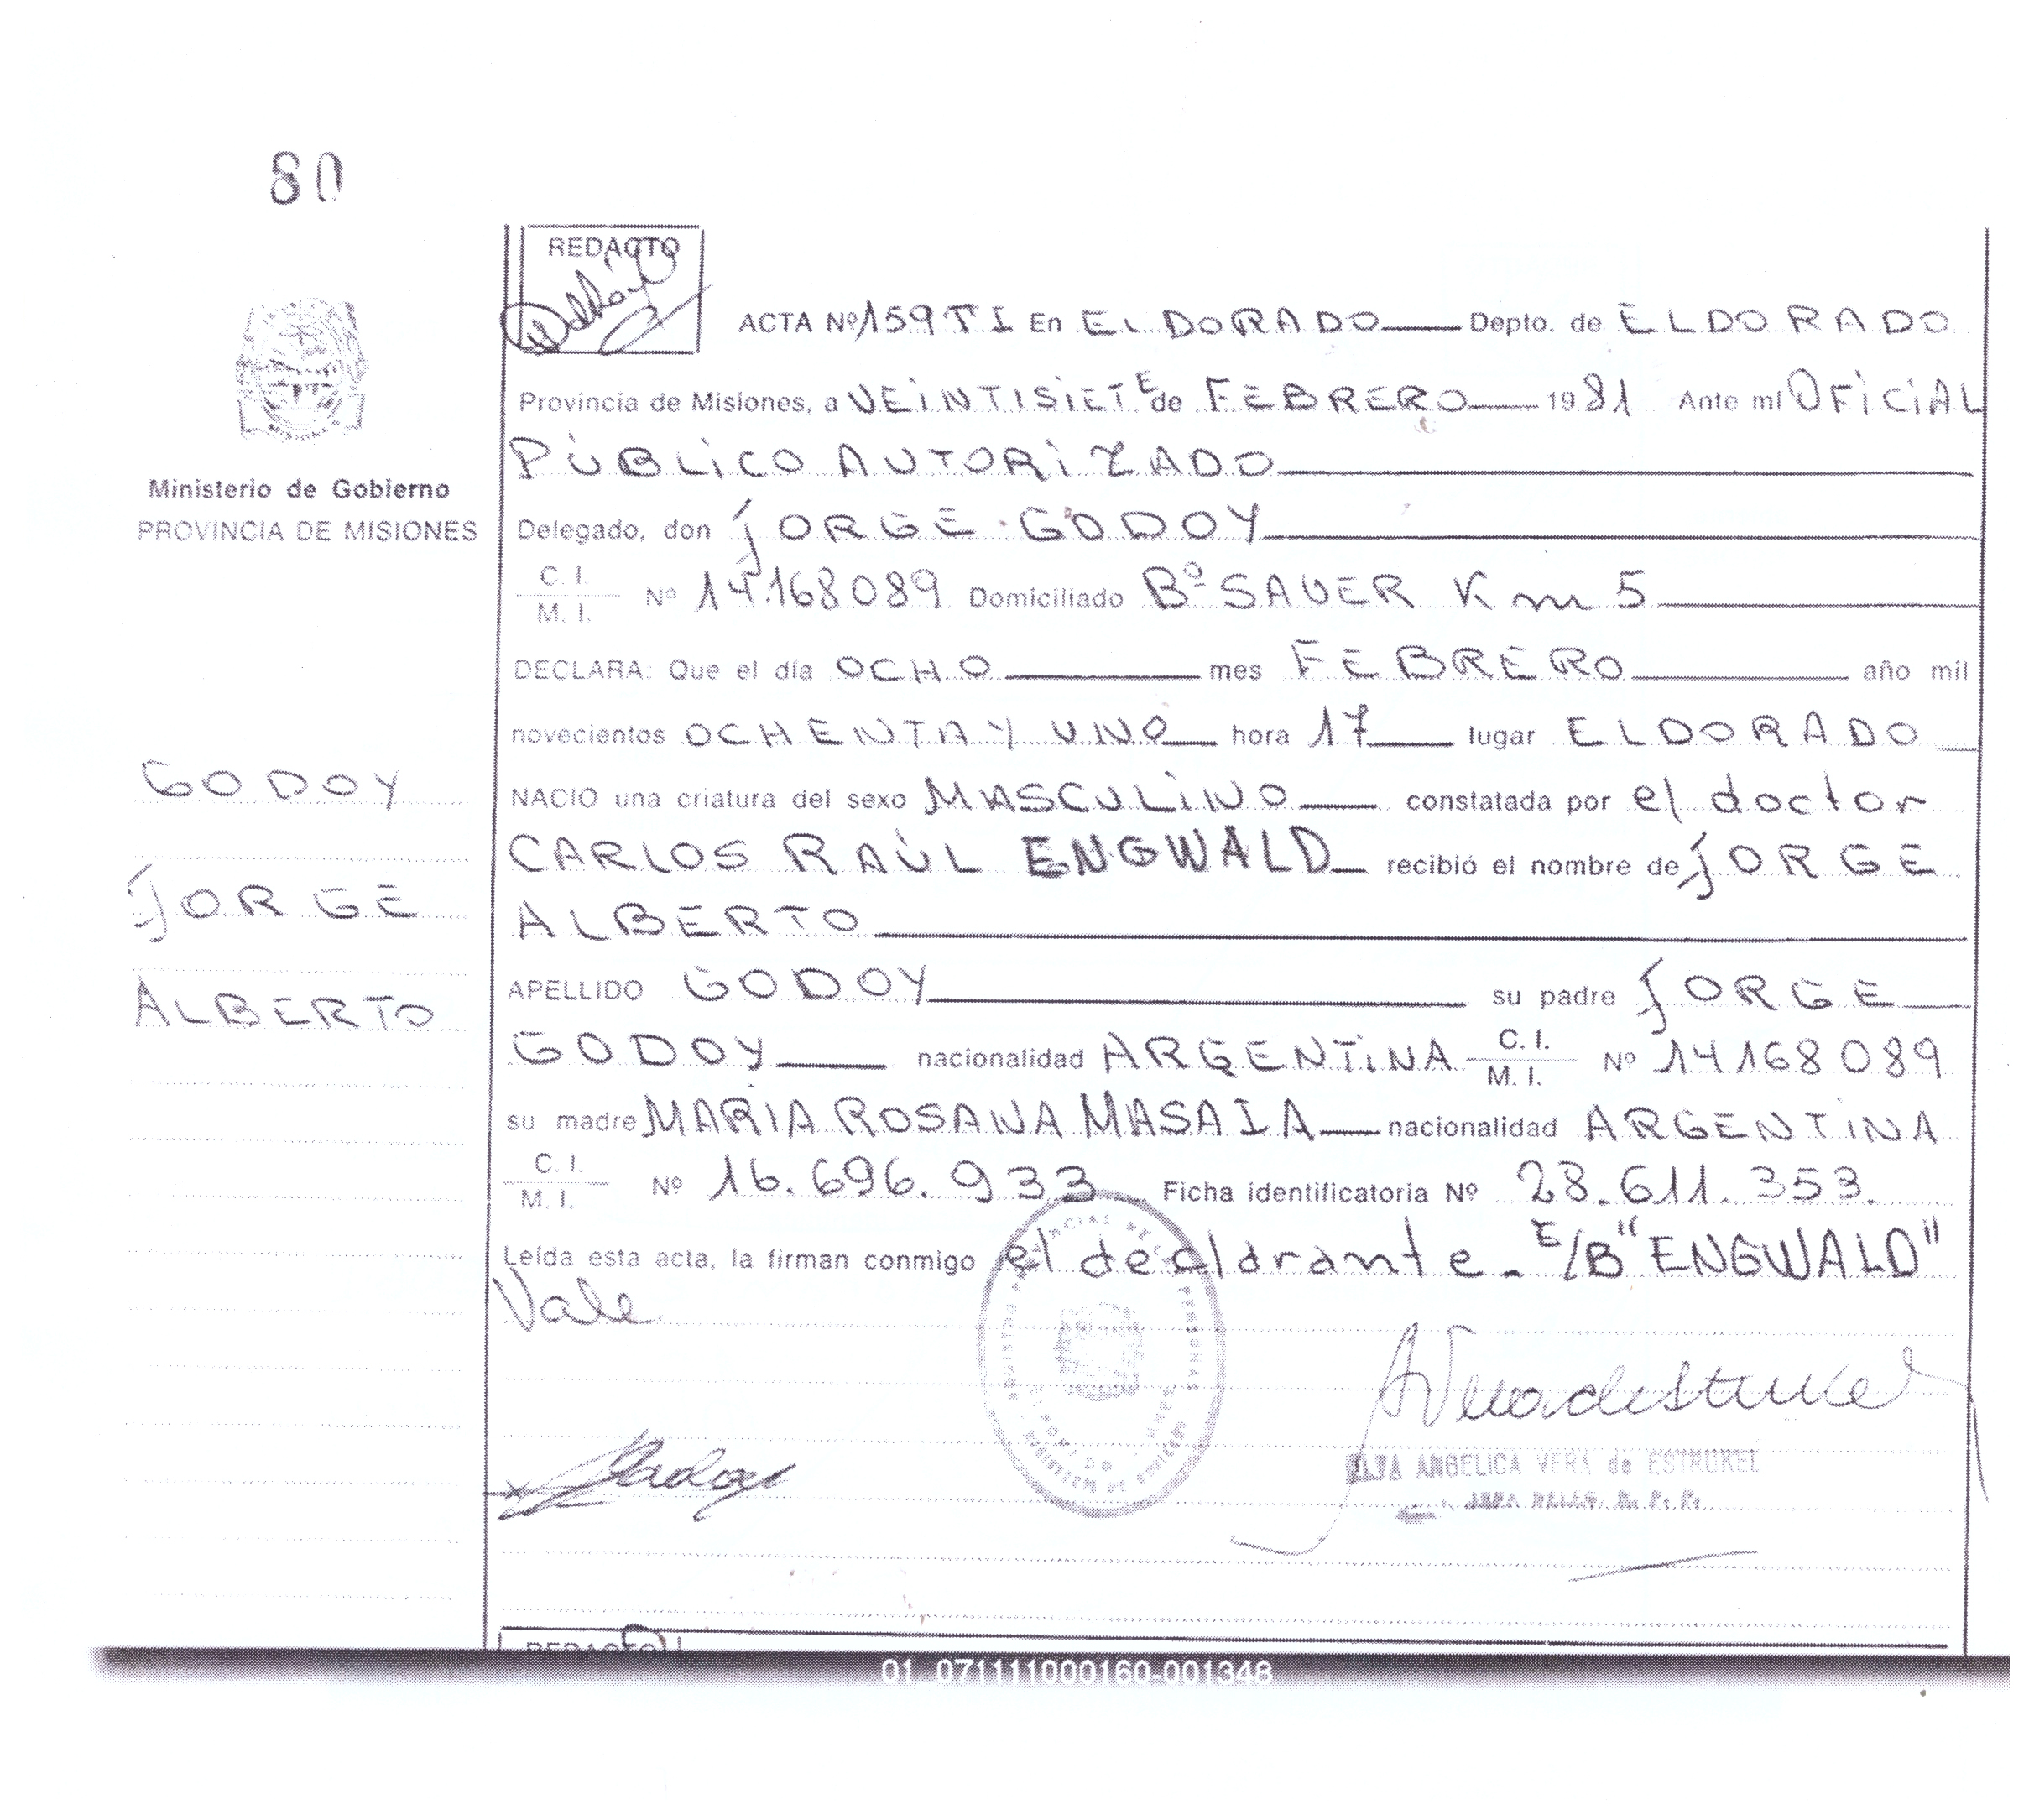 80
REDACTO
ACTA Nº 159 T I En ELDORADO Depto. de ELDORADO
Provincia de Misiones, a VEINTISIETE de FEBRERO 1981 Ante mí OFICIAL
PÚBLICO AUTORIZADO
Ministerio de Gobierno
PROVINCIA DE MISIONES
Delegado, don JORGE GODOY
C. I.
M. I. Nº 14.168089 Domiciliado Bº SAUER Km 5
DECLARA: Que el día OCHO mes FEBRERO año mil
novecientos OCHENTA Y UNO hora 17 lugar ELDORADO
GODOY
JORGE
ALBERTO
NACIO una criatura del sexo MASCULINO constatada por el doctor
CARLOS RAÚL ENGWALD recibió el nombre de JORGE
ALBERTO
APELLIDO GODOY su padre JORGE
GODOY nacionalidad ARGENTINA C. I. M. I. Nº 14168089
su madre MARIA ROSANA MASAIA nacionalidad ARGENTINA
C. I.
M. I. Nº 16.696.933 Ficha identificatoria Nº 28.611.353.
Leída esta acta, la firman conmigo el declarante. E/B "ENGWALD"
Vale
ANGELICA VERA de ESTRUKEL
REDACTO
01_071111000160-001348